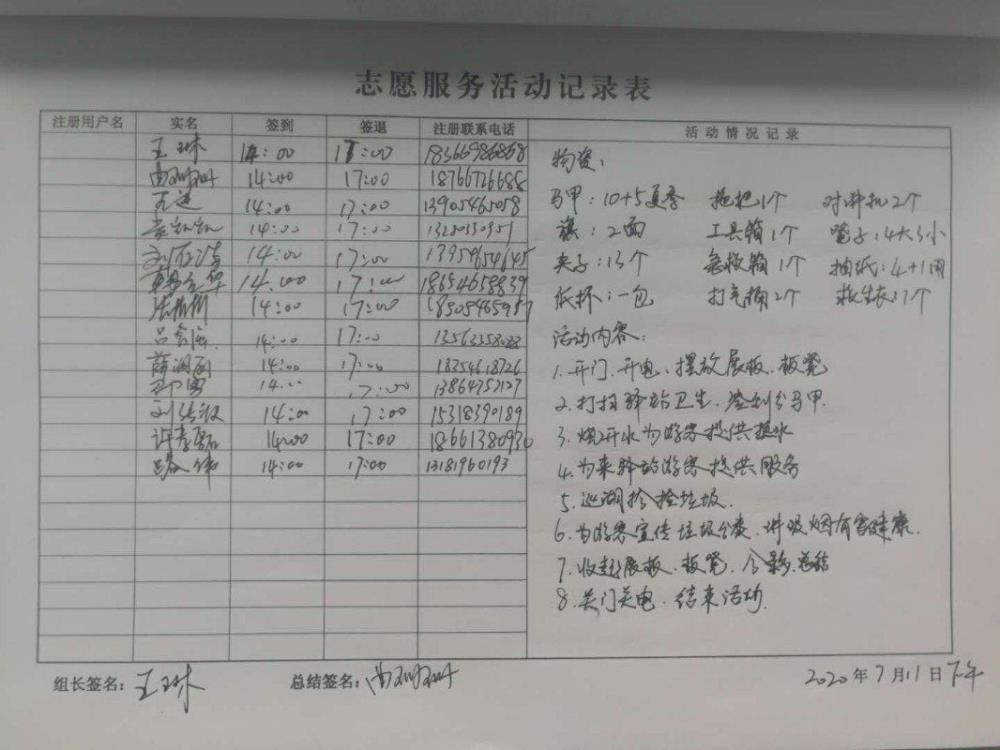 志愿服务活动记录表
注册用户名 实名 签到 签退 注册联系电话 活动情况记录
王琳 14:00 17:00 18566986868
14:00 17:00 18766726688
王进 14:00 17:00 13905465058
14:00 17:00
14:00 17:00
14:00 17:00 18654658839
14:00 17:00
14:00 17:00
薛润丽 14:00 17:00 18354618726
14:00 17:00 13864752127
14:00 17:00 15318390189
14:00 17:00 18661380930
14:00 17:00 13181960193
物资:
马甲:10+5夏季 拖把1个 对讲机2个
旗:2面 工具箱1个 凳子:4大3小
夹子:13个 急救箱1个 抽纸:4+1用
纸杯:一包 打气桶2个 救生衣:7个
活动内容:
1.开门、开电、摆放展板、板凳
2.打扫驿站卫生、签到分马甲.
3.烧开水为游客提供热水
4.为来驿站游客提供服务
5.巡湖捡捡垃圾.
6.为游客宣传垃圾分类、讲吸烟有害健康.
7.收起展板、板凳、合影、总结
8.关门关电、结束活动.
组长签名:王琳 总结签名: 2020年7月11日下午